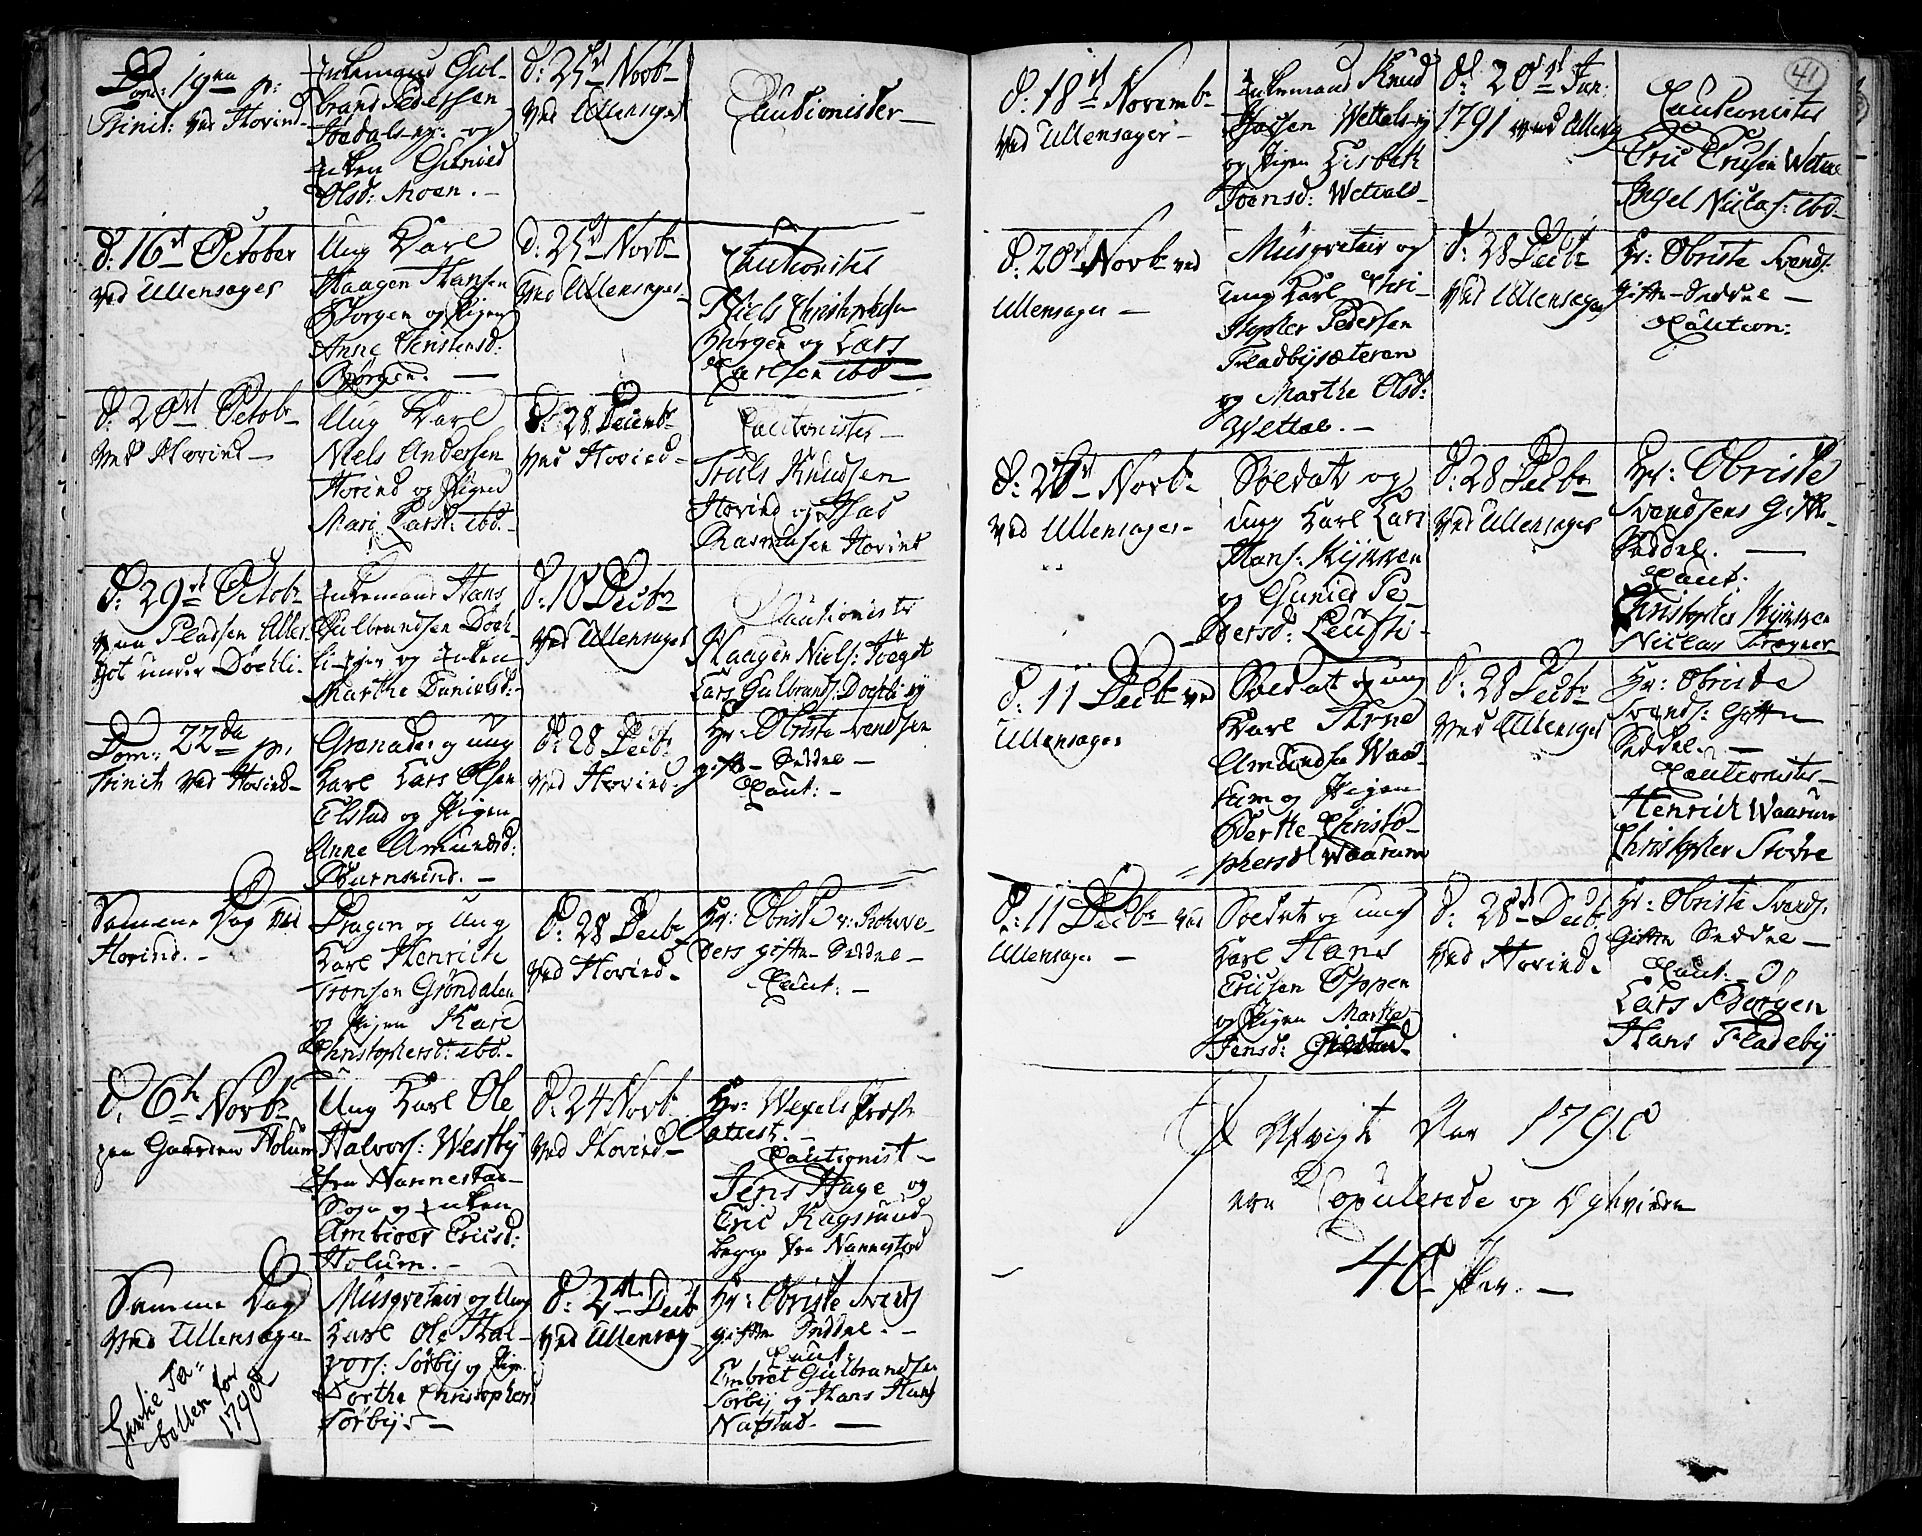 Dom: 19na p:
Trinit: ved Hovind
Enkemand Gul-
brand Pedersen
og
Enken Gunild
Olsd: Moen.
d: 25de Novb
ved Ullensager
Cautionister
d: 16de October
ved Ullensager
Ung Karl
Haagen Hansen
Borgen og Pigen
Anne Christensd:
Borgen.
d: 25de Novb
ved Ullensager
Cautionister
Niels Christophersen
Borgen og Lars
Carlsen ibd
d: 20de Octob
ved Hovind
Ung Karl
Niels Andersen
Hovind og Pigen
Mari Larsd: ibd.
d: 28 Decemb
ved Hovind
Cautionister
Truls Knudsen
Hovind og
Rasmusen Hovind
d: 29de Octob
paa Pladsen
under Døhli.
Enkemand Hans
Gulbrandsen Døh-
li og Enken
Marthe Danielsd:
d: 10 Decb
ved Ullensager
Cautionister
Haagen Niels:
Lars Gulbrands: Døhli
Dom: 22da p.
Trinit ved Hovind
Granader og ung
Karl Lars Olsen
Elstad og Pigen
Anne Amundsd:
d: 28 Decb
ved Hovind
Hr: Obriste Svendsen
gifte Seddel
Caut:
Samme Dag ved
Hovind.
Dragon og Ung
Karl Henrich
Tronsen Grøndalen
og Pigen Kari
Christophersd: ibd.
d: 28 Decb
ved Hovind
Hr: Obriste v:
ders gifte Seddel
Caut:
d. 6te Novb
paa Gaarden Holum
Ung Karl Ole
Halvors: Westby
fra Nannestad
Sogn og Enken
Ericsd:
Holum.
d: 24 Novb
ved Hovind
Hr: Wexels Præste
attest.
Cautionist
Jens Hage og
Eric Kagsrud
begge fra Nannestad
Samme Dag
ved Ullensager
Musqvetair og Ung
Karl Ole Hal-
vors: Sørby og Pige
Dorthe Christophersd
Sørby
d: 2den Decb
ved Ullensag
Hr: Obriste Svends
gifte Seddel.
Caut:
Embret Gulbrandsen
Sørby og Hans Hans
Nafstad.
Ta-
bellen for
1790
41
d: 18de Novemb
ved Ullensager
Enkemand Knud
Wettals
og Pigen Lisbeth
Joensd: Wettals
d: 20de Jan:
1791 ved Ullens
Cautionister
Eric Ericsen Wettal
Engel Niclas: ibd
d: 20de Novb ved
Ullensager
Musqvetair og
ung Karl Chri-
stopher Pedersen
Fladbysæteren
og Marthe Olsd:
Wettal.
d: 28 Decb
ved Ullensager
Hr: Obriste Svends:
gifte Seddel
Caution:
Novb
ved Ullensager
Soldat og
ung Karl Lars
Hans: Kynnen
og Gunild Pe-
dersd:
d: 28 Decb
ved Ullensager
Hr: Obriste
Svendsens Gifte
Seddel.
Caut:
Christopher Kynnen
Niclas Trøgner
d: 11 Decb ved
Ullensager
Soldat og ung
Karl Arne
Amundsen Waa-
rum og Pigen
Berthe Christo-
phersd Waarum
d: 28 Decb
ved Ullensager
Hr: Obriste
Svends: Gifte
Seddel.
Cautionister
Henrich Waarum
Christopher
d: 11 Decb ved
Ullensager
Soldat og ung
Karl Hans
Ericsen Oppen
og Pigen Marthe
Jensd:
d: 28de Decb
ved Hovind
Hr: Obriste Svends:
Gifte Seddel
Caut.
Lars Borgen
Hans Fladeby
I Afvigte Aar 1790
ere Copulerede og
40 Par.